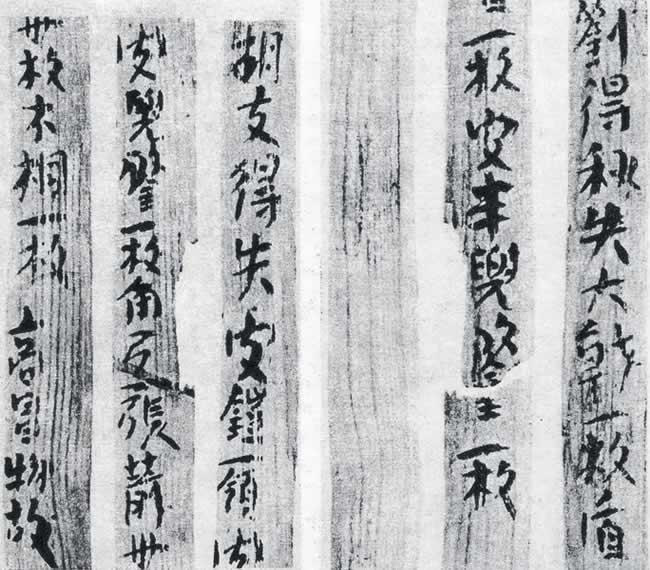 劉得秋失大戟一枚盾
一枚皮兜鍪一枚
胡支得失皮鎧一領皮
皮兜鍪一枚角弓一張箭卅
卅枚木桐一枚高昌物故